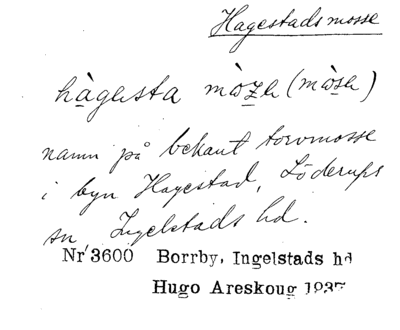 Hagestads mosse
hàgesta mòze (mòse)
namn på bekant torvmosse
i byn Hagestad, Löderups
sn Ingelstads hd.
Nr 3600 Borrby, Ingelstads hd
Hugo Areskoug 1937